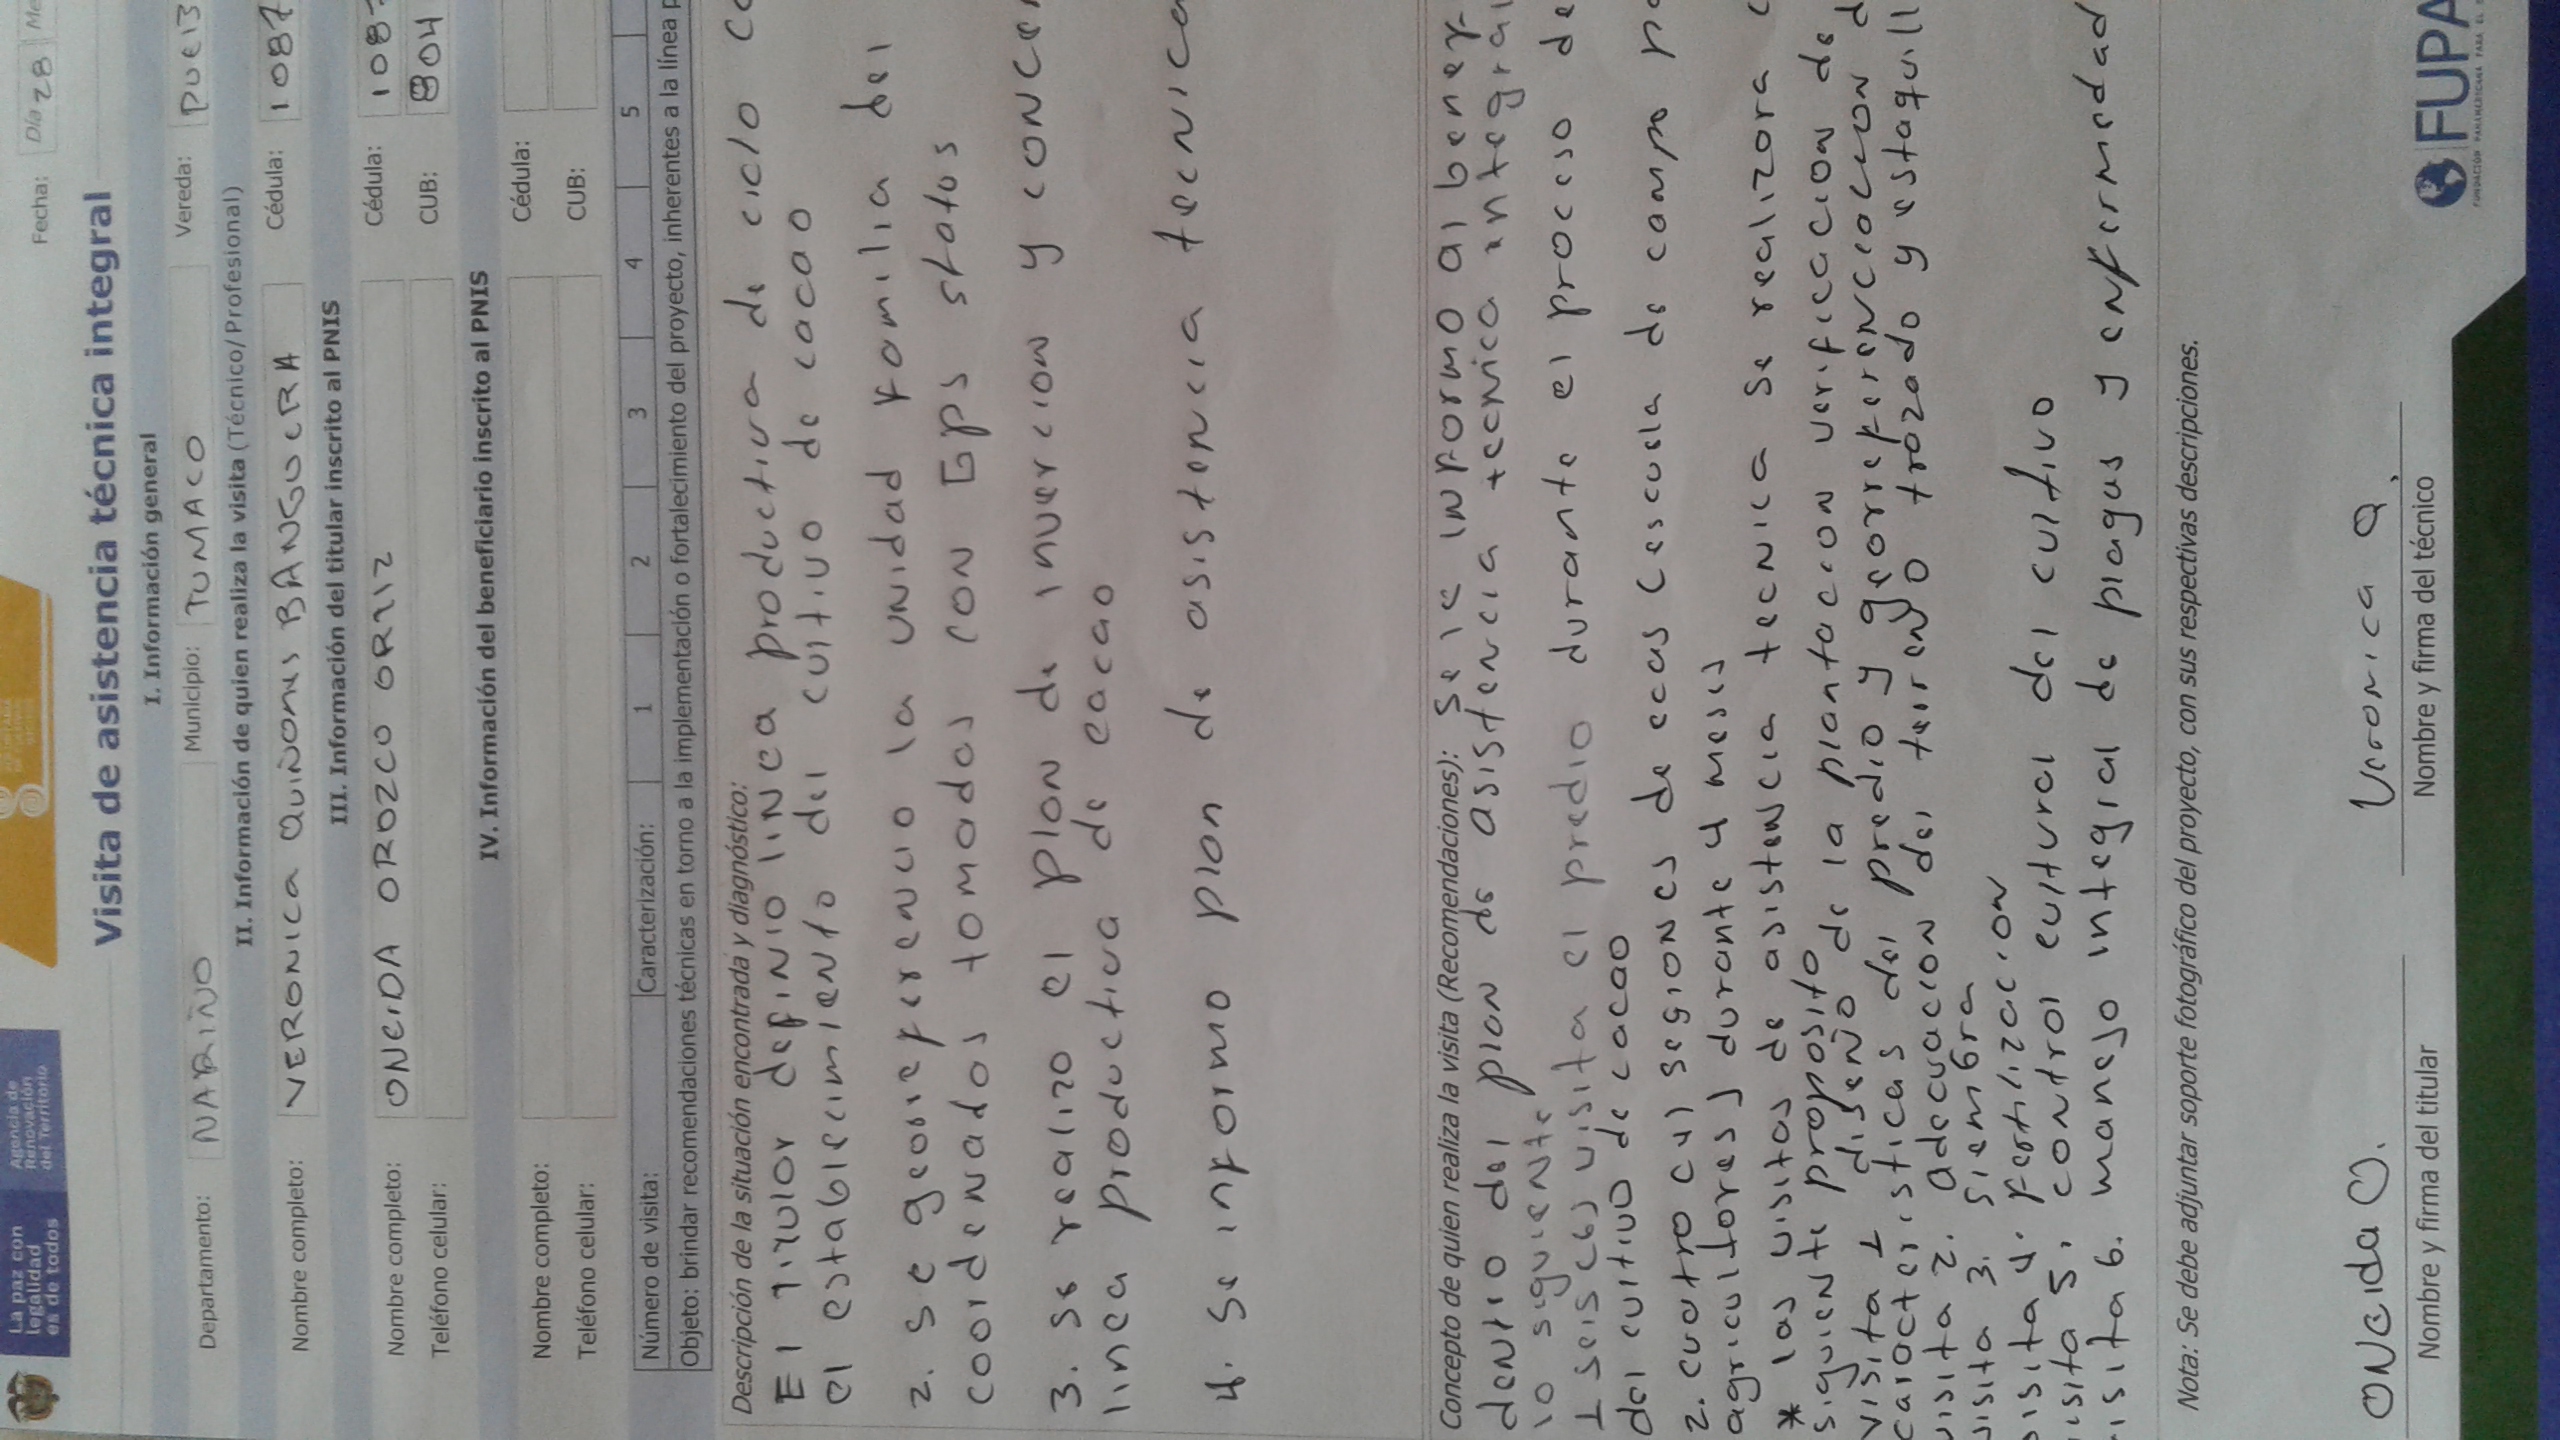 La paz con
legalidad
es de todos
Agencia de
Renovación
del Territorio
Fecha: Día 28
Visita de asistencia técnica integral
I. Información general
Departamento: NARIÑO Municipio: TUMACO Vereda:
II. Información de quien realiza la visita (Técnico/Profesional)
Nombre completo: VERONICA QUIÑONES BANGUERA Cédula: 1087
III. Información del titular inscrito al PNIS
Nombre completo: ONEIDA OROZCO ORTIZ Cédula: 1087
Teléfono celular: CUB: 804
IV. Información del beneficiario inscrito al PNIS
Nombre completo: Cédula:
Teléfono celular: CUB:
Número de visita: Caracterización: 1 2 3 4 5
Objeto: brindar recomendaciones técnicas en torno a la implementación o fortalecimiento del proyecto, inherentes a la línea p
Descripción de la situación encontrada y diagnóstico:
El titulor definio linea productiva de ciclo
el establecimiento del cultivo de cacao
2. se georreferencio la unidad familia del
coordenadas tomadas con Gps status
3. se realizo el plan de invercion y
linea productiva de cacao
4. Se informo plan de asistencia tecnica
Concepto de quien realiza la visita (Recomendaciones): Se le informo al
dentro del plan de asistencia tecnica integral
lo siguiente
1 seis (6) visita el predio durante el proceso de
del cultivo de cacao
2. cuatro (4) segiones de ecas (escuela de campo
agricultores) durante 4 meses
* las visitas de asistencia tecnica se realizora
siguiente proposito
visita 1 diseño de la plantacion verificacion de
caracteristicas del predio y georreferenciacion d
visita 2. adecuacion del terreno trozado y estaquill
visita 3. siembra
visita 4. fertilizacion
visita 5. control cultural del cultivo
visita 6. manejo integral de plagas y enfermedad
Nota: Se debe adjuntar soporte fotográfico del proyecto, con sus respectivas descripciones.
ONeida O. Veronica Q.
Nombre y firma del titular Nombre y firma del técnico
FUPA